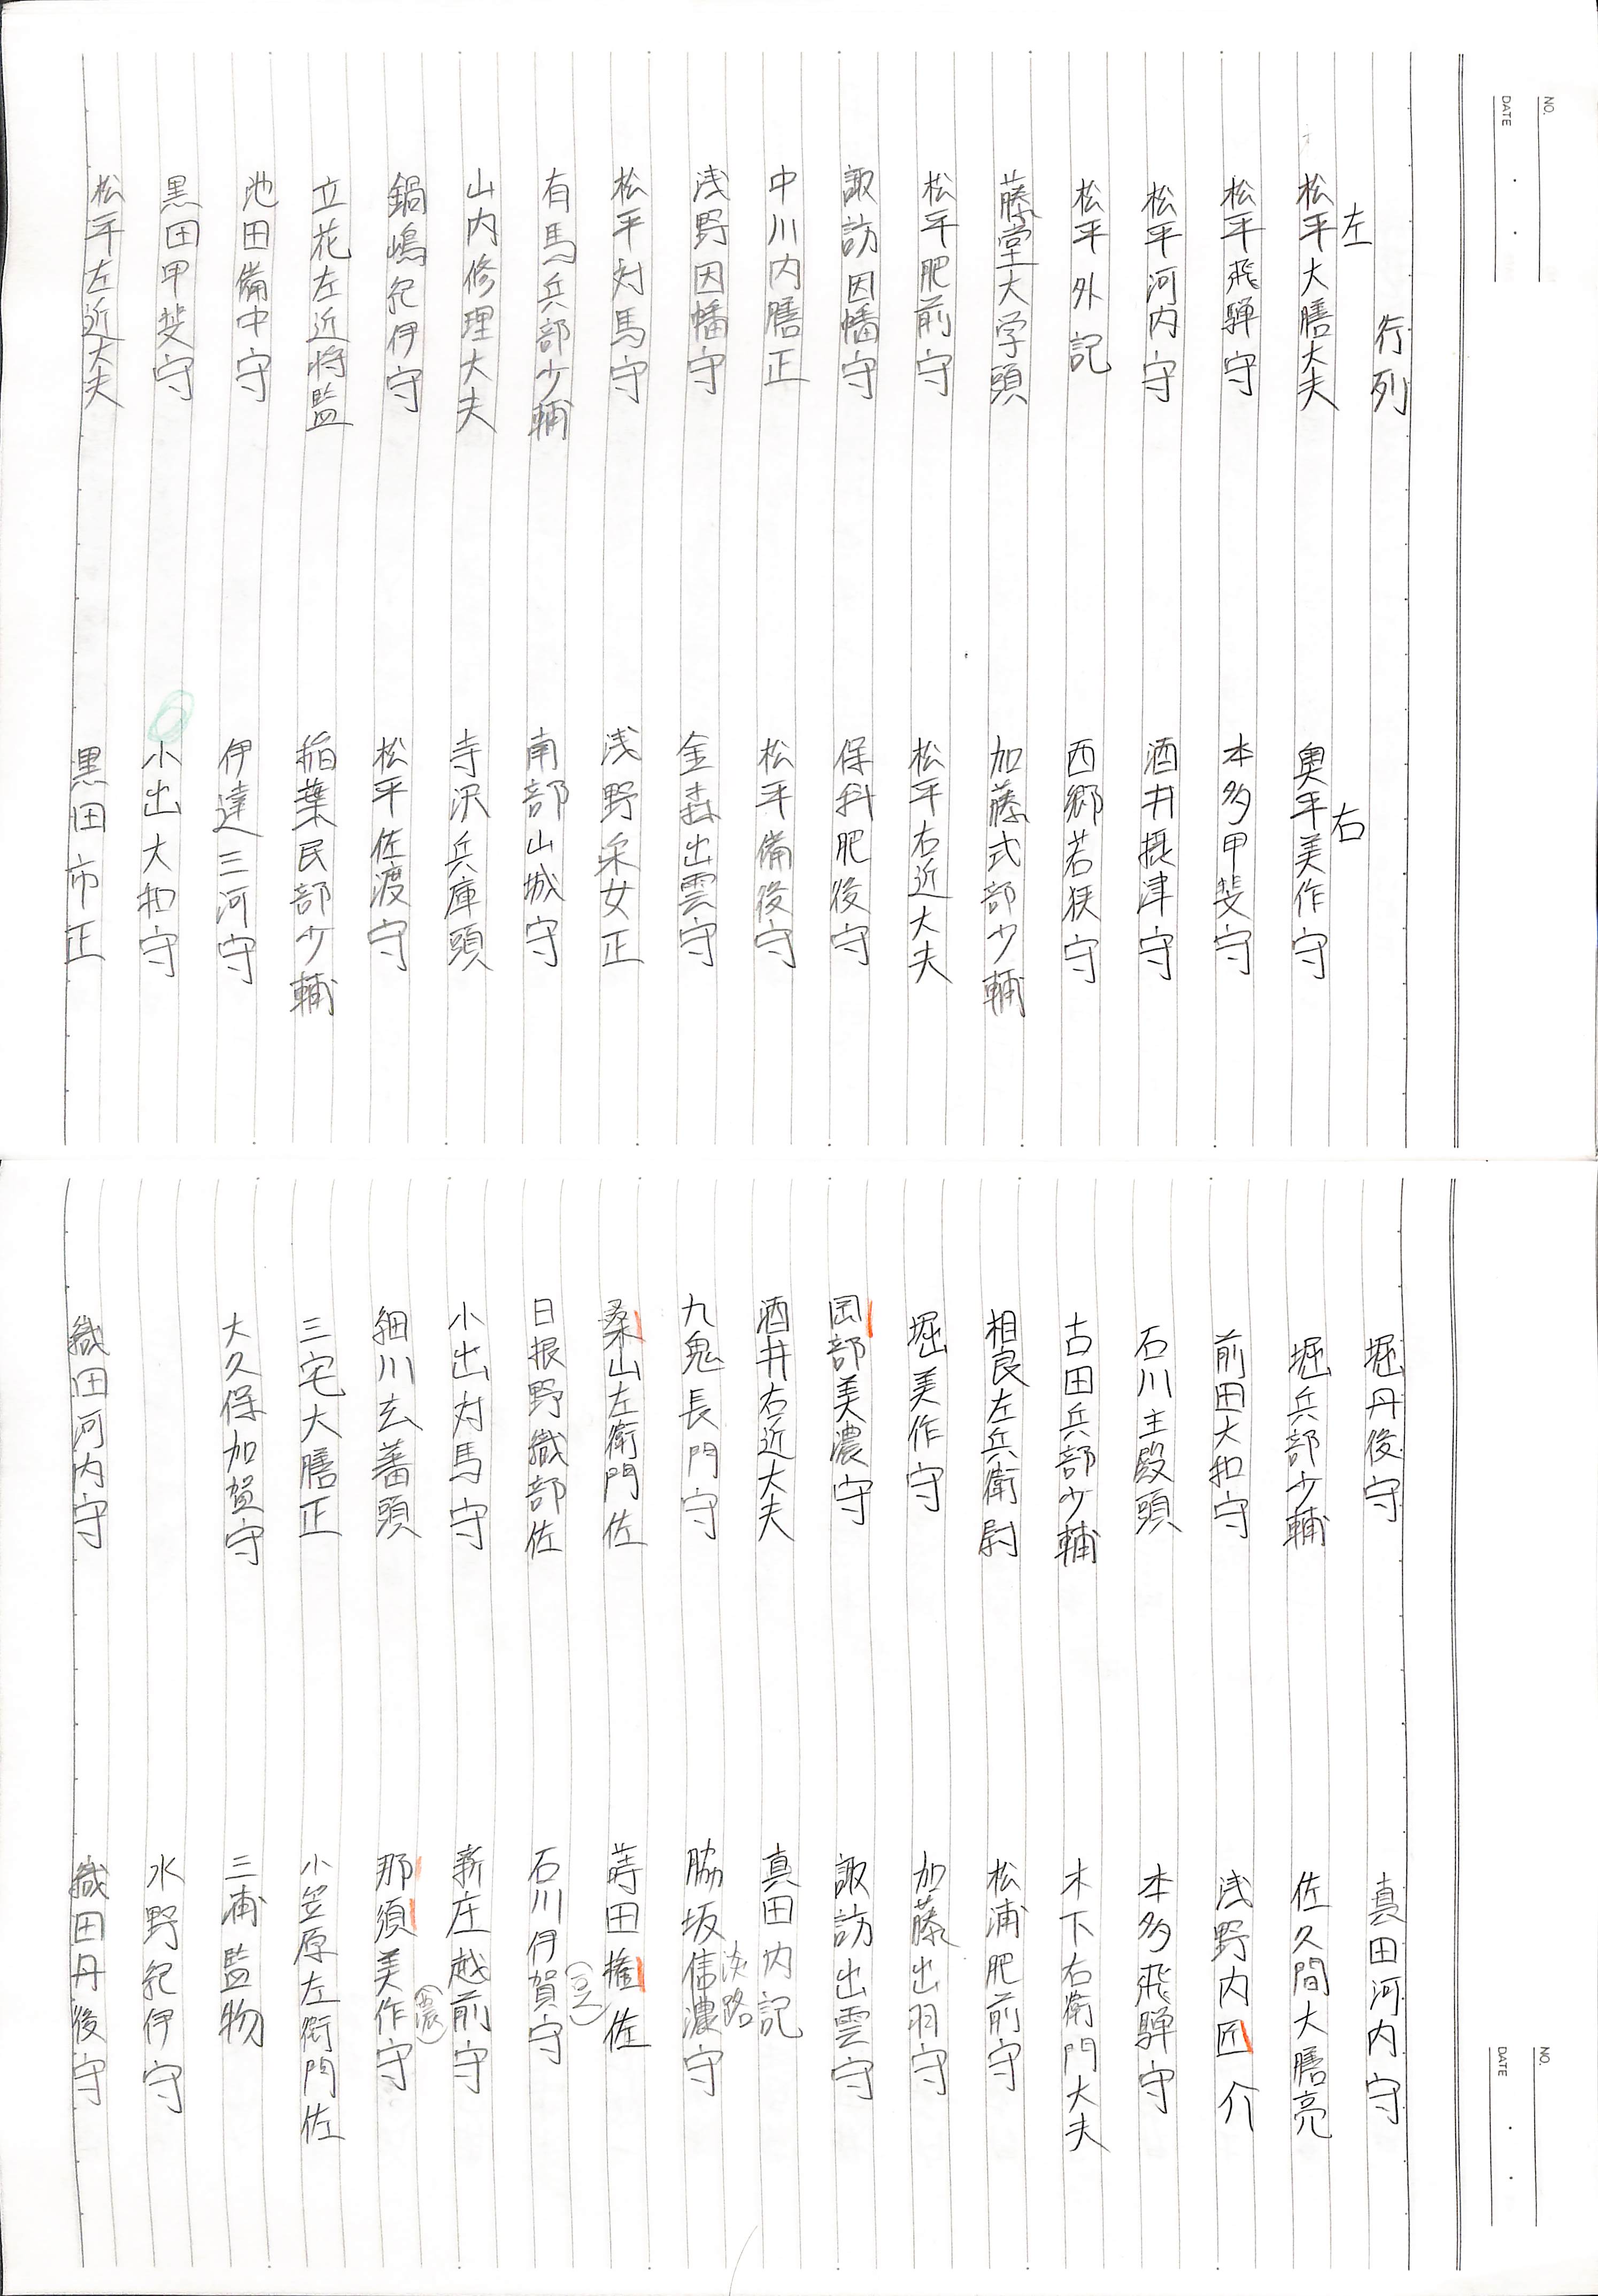 NO.
DATE
行列
左
右
松平大膳大夫
奥平美作守
松平飛騨守
本多甲斐守
松平河内守
酒井摂津守
松平外記
西郷若狭守
藤堂大学頭
加藤式部少輔
松平肥前守
松平右近大夫
諏訪因幡守
保科肥後守
中川内膳正
松平備後守
浅野因幡守
金森出雲守
松平対馬守
浅野采女正
有馬兵部少輔
南部山城守
山内修理大夫
寺沢兵庫頭
鍋嶋紀伊守
松平佐渡守
立花左近将監
稲葉民部少輔
池田備中守
伊達三河守
黒田甲斐守
小出大和守
松平左近大夫
黒田市正
NO.
DATE
堀丹後守
真田河内守
堀兵部少輔
佐久間大膳亮
前田大和守
浅野内匠介
石川主殿頭
本多飛騨守
古田兵部少輔
木下右衛門大夫
相良左兵衛尉
松浦肥前守
堀美作守
加藤出羽守
岡部美濃守
諏訪出雲守
酒井右近大夫
真田内記
九鬼長門守
淡路
脇坂信濃守
桑山左衛門佐
蒔田権佐
日根野織部佐
石川伊賀守
小出対馬守
新庄越前守
(濃)
細川玄蕃頭
那須美作守
三宅大膳正
小笠原左衛門佐
大久保加賀守
三浦監物
水野紀伊守
織田河内守
織田丹後守